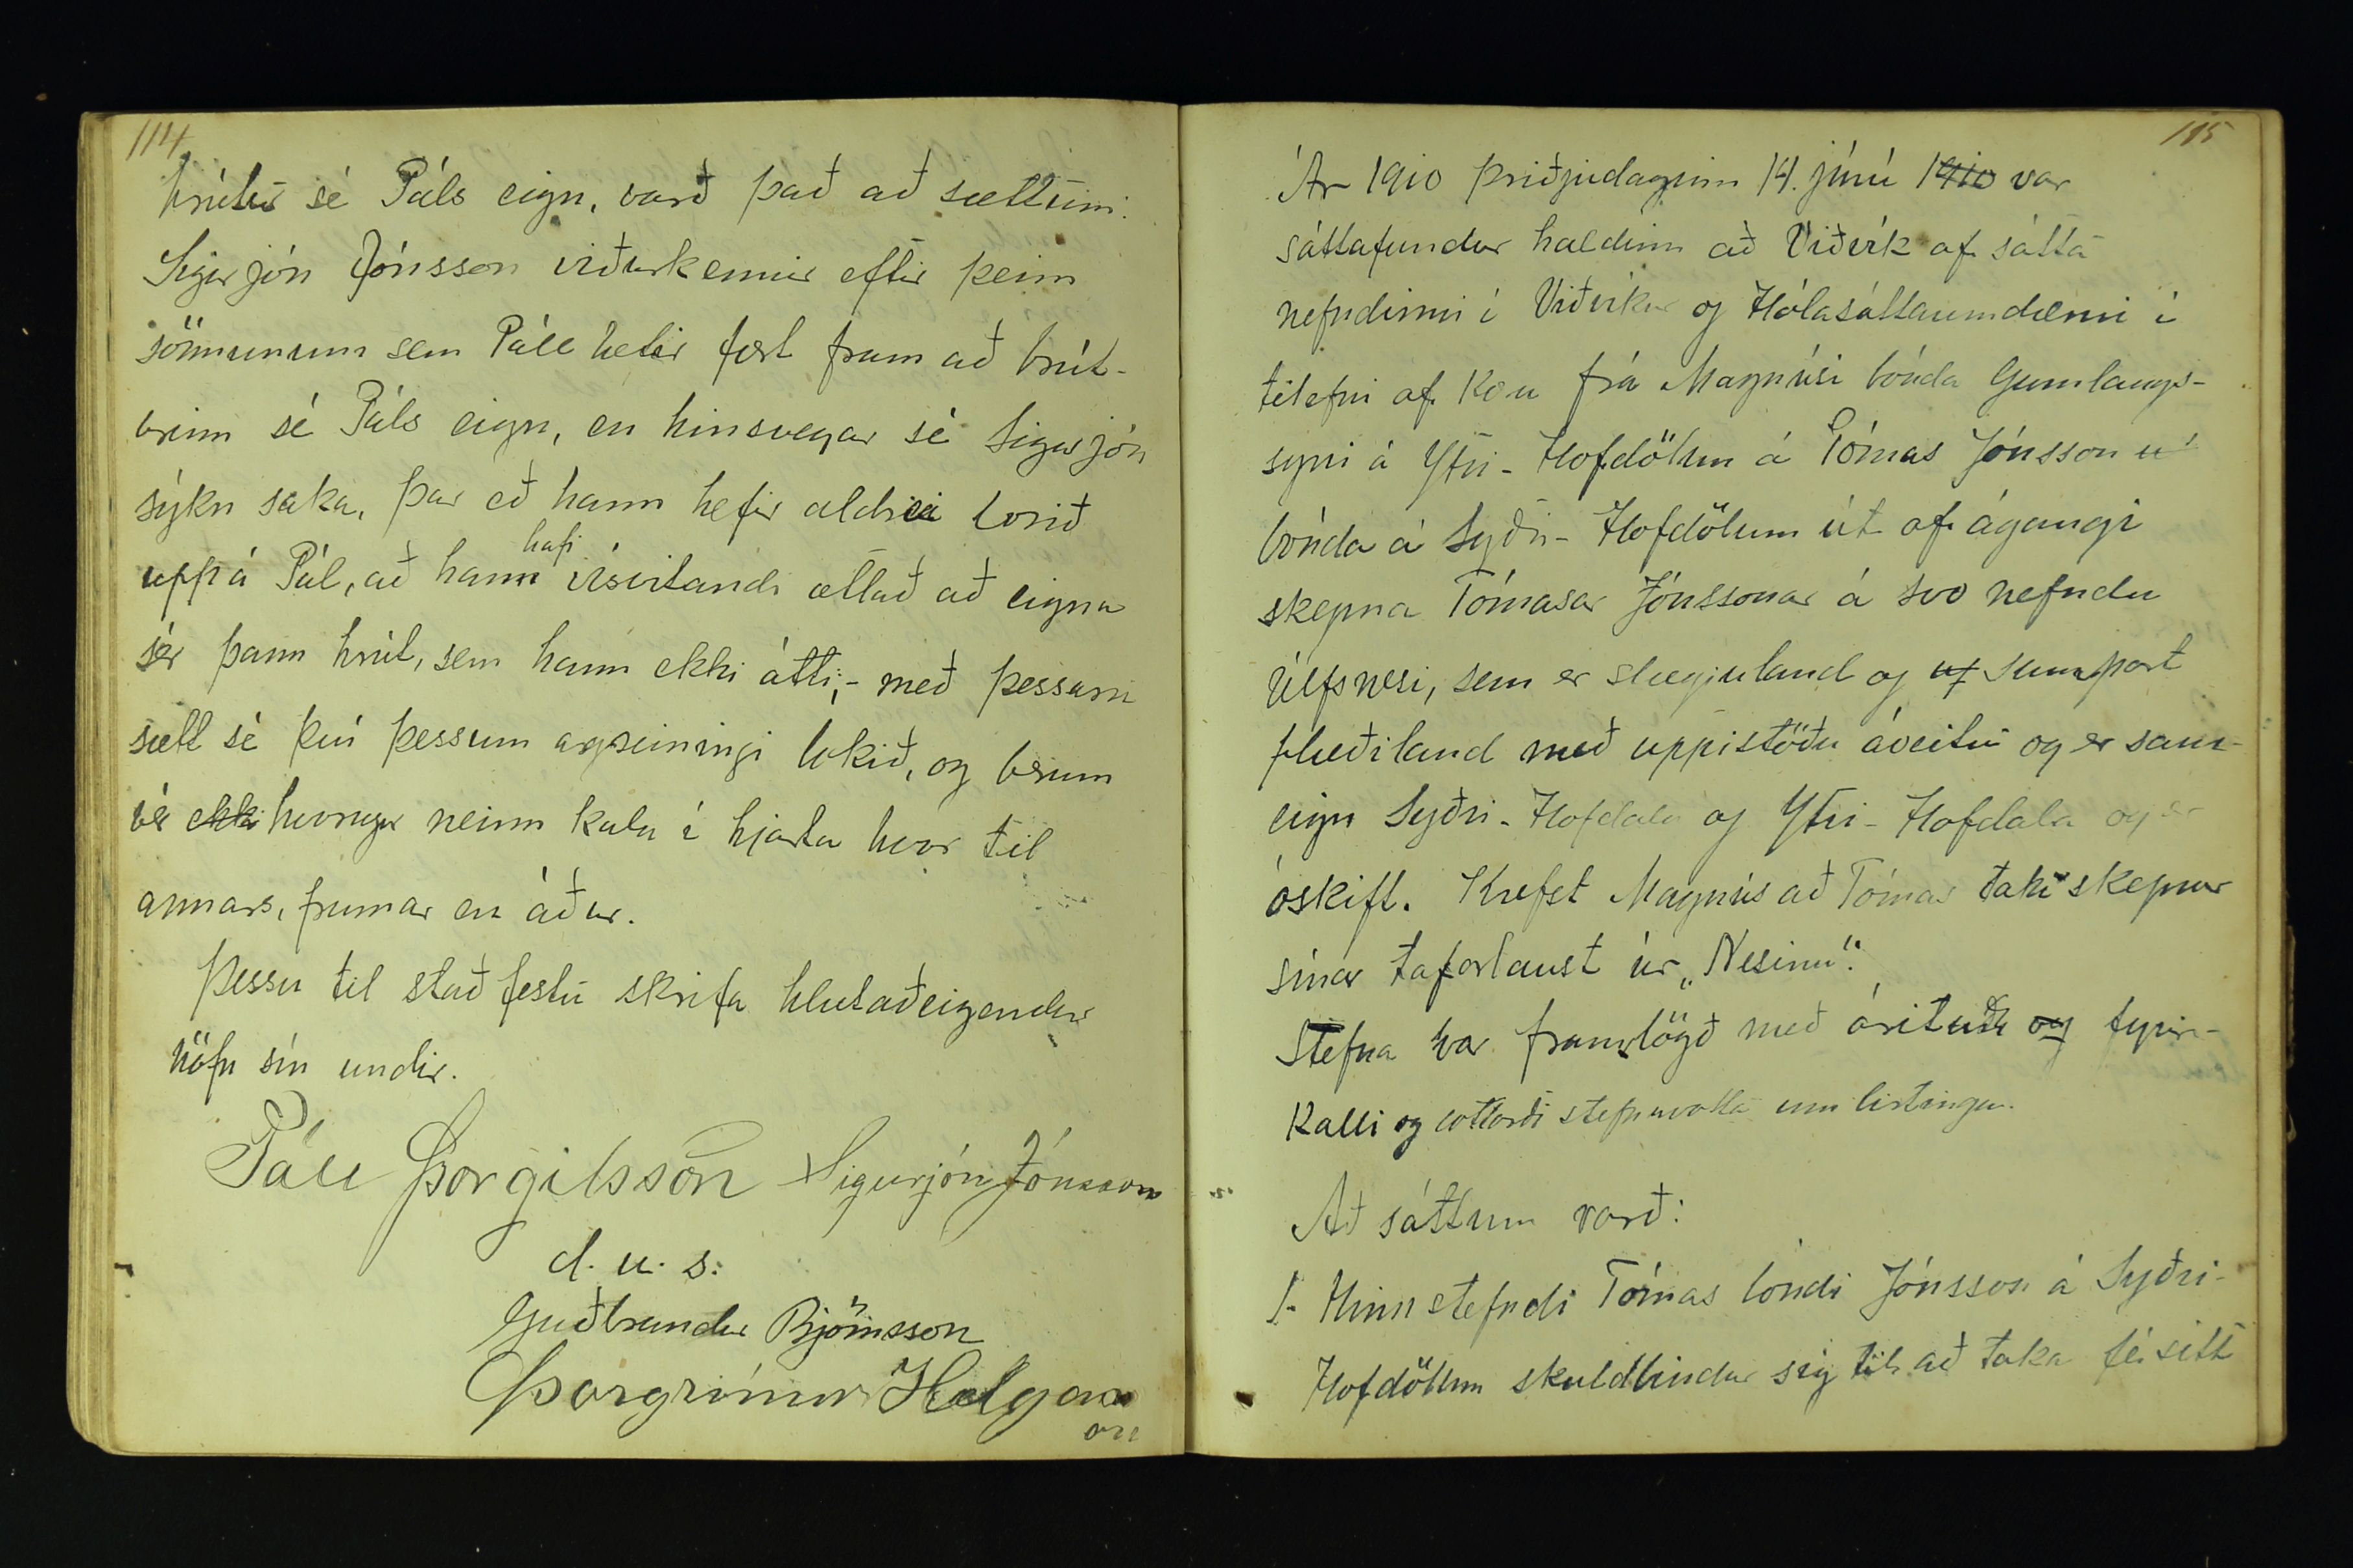 114
hrútur sé Páls eign, varð það að sættum:
Sigurjón Jónsson viðurkennir eftir þeim
sönnunum sem Páll hefir fært fram að hrút-
urinn sé Páls eign, en hinsvegar sé Sigurjón
sýkn saka, þar eð hann hefir aldrei borið
hafi
uppá Pál, að hann vísvitandi ætlað að eigna
sér þann hrút, sem hann ekki átti,- með þessari
sætt sé því þessum agreiningi lokið, og berum
vér ekki hvorugur neinn kala í hjarta hvor til
annars, frumar en áður.
Þessu til staðfestu skrifa hlutaðeigendur
nöfn sín undir.
Páll Þorgilsson Sigurjón Jónsson
d. u. s:
Guðbrandur Björnsson
Þorgrímur Helgason
115
Ár 1910 þriðjudaginn 14. júní 1910 var
sáttafundur haldinn að Viðvík af sátta
nefndinni í Viðvíkur og Hólasáttaumdæmi í
tilefni af kæu frá Magnúsi bónda Gunnlaugs-
syni á Ytri-Hofdölum á Tómas Jónsson
bónda á Syðri-Hofdölum út af ágangi
skepna Tómasar Jónssonar á svo nefndu
Úlfsnesi, sem er slægjuland og uf sumpart
flæðiland með uppistöðu áveitu og er sam-
eign Syðri-Hofdala og Ytri-Hofdala og er
óskift. Krefst Magnús að Tómas taki skepnur
sínar taforlaust úr „Nesinu“.
Stefna var framlögð með árituðu og fyrir-
kalli og vottorði stefnuvotta um birtingu.
Að sáttum varð:
1. Hinn stefndi Tómas bóndi Jónsson á Syðri-
Hofdölum skuldbindur sig til að taka fé sitt